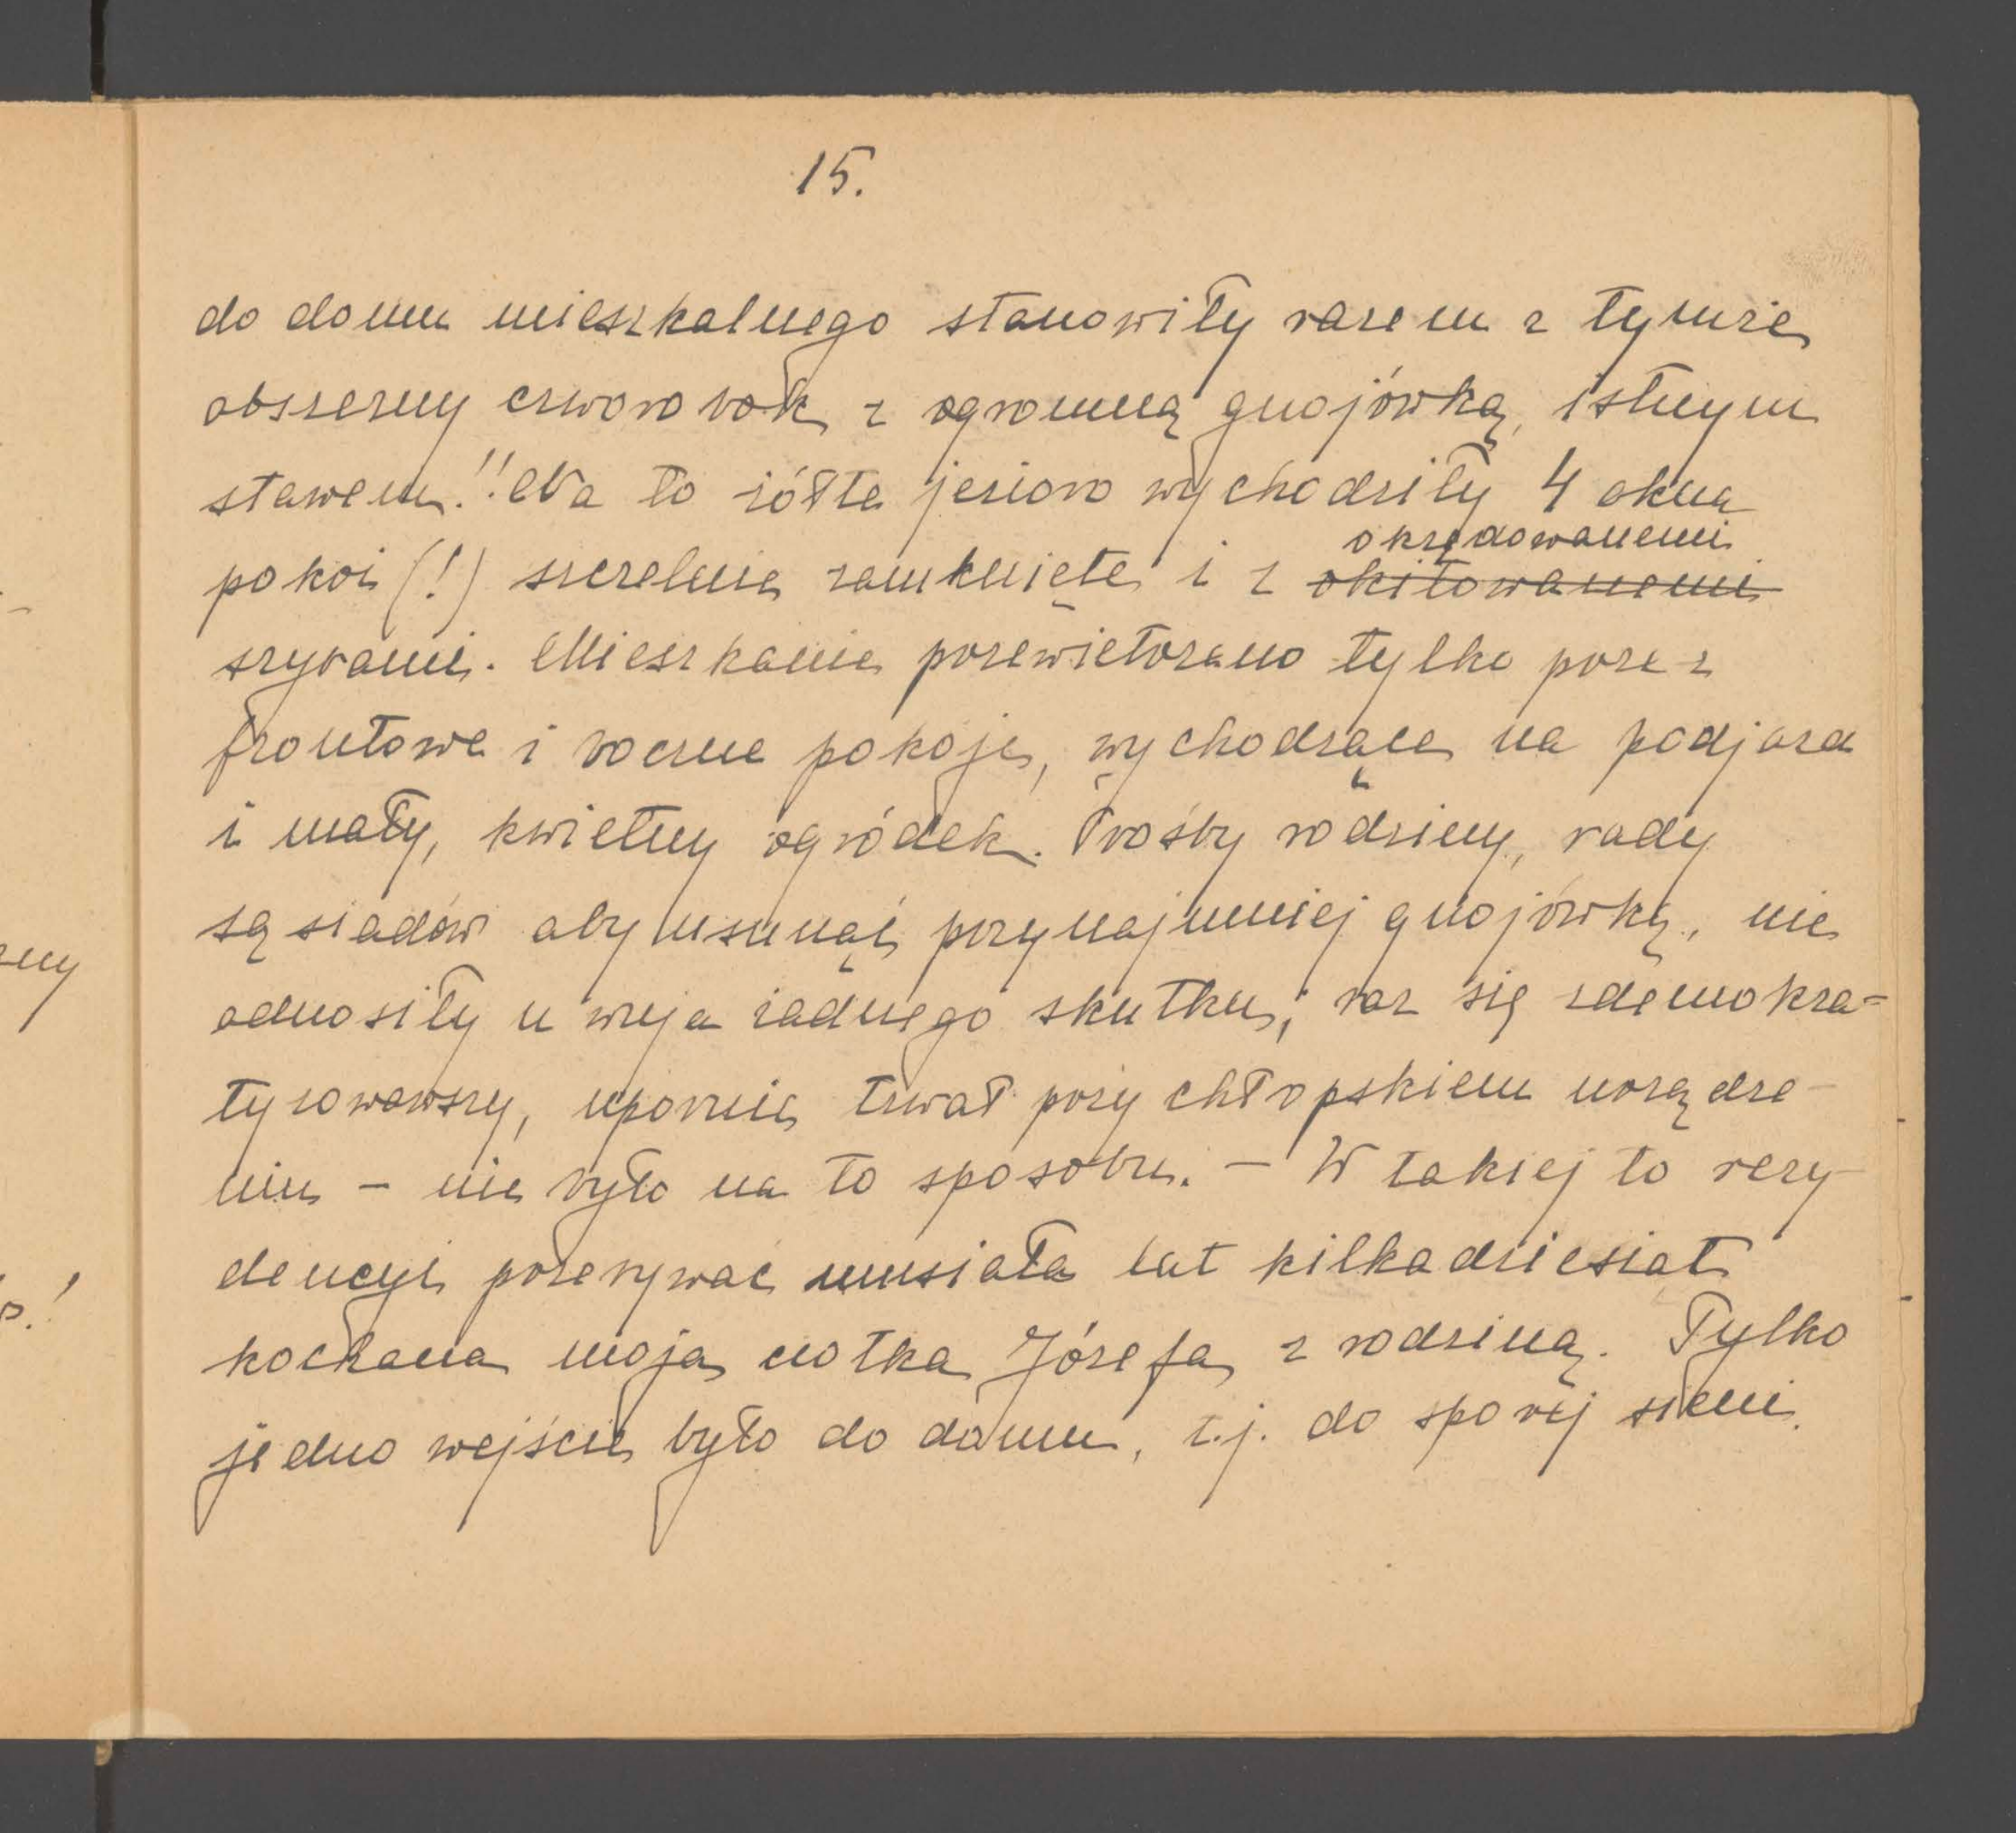 15.
do domu mieszkalnego stanowiły razem z tymże
obszerny czworobok z ogromną gnojówką, istnym
stawem!! Na to żółte jezioro wychodziły 4 okna
okrędowanemi
pokoi (!) szczelnie zamknięte i z okitowanemi
szybami. Mieszkanie przewietrzano tylko przez
frontowe i boczne pokoje, wychodzące na podjazd
i mały, kwietny ogródek. Prośby rodziny, rady
sąsiadów aby usunąć przynajmniej gnojówkę, nie
odnosiły u wuja żadnego skutku; raz się zdemokra=
tyzowawszy, upornie trwał przy chłopskiem urządze-
niu – nie było na to sposobu. – W takiej to rezy-
dencyi przebywać musiała lat kilkadziesiąt
kochana moja ciotka Józefa z rodziną. Tylko
jedno wejście było do domu, t.j. do sporej sieni.
zny